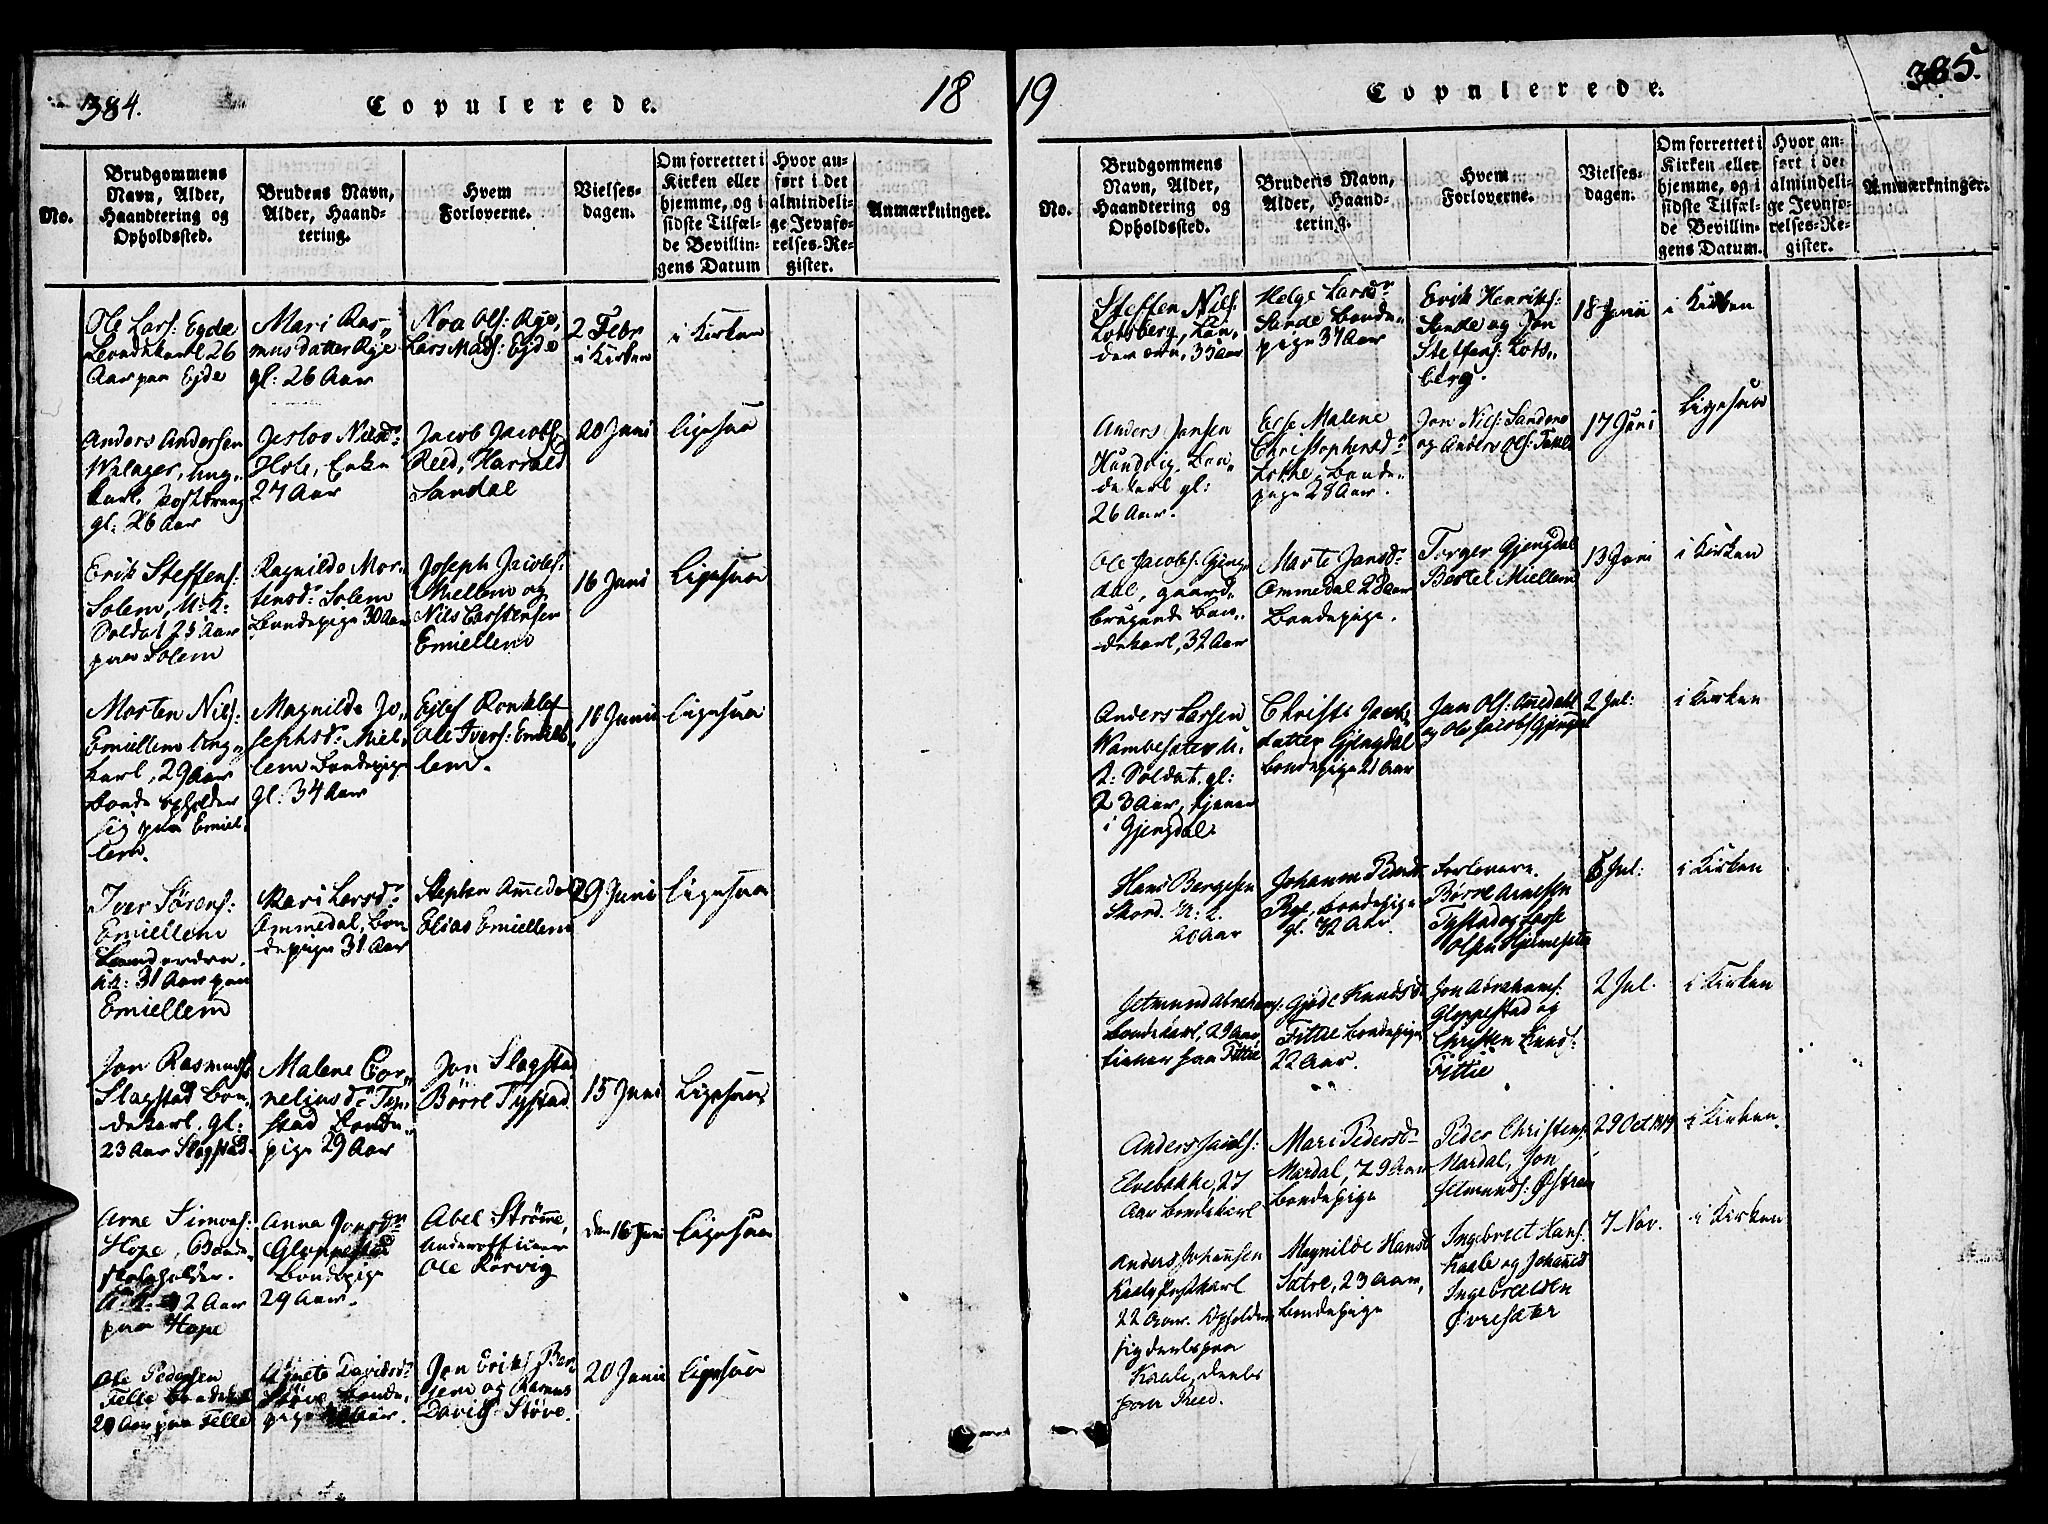 384.
Copulerede.
18
No.
Brudgommens
Navn, Alder,
Haandtering og
Opholdssted.
Brudens Navn,
Alder, Haand-
tering.
Hvem
Forloverne.
Vielses-
dagen.
Om forrettet i
Kirken eller
hjemme, og i
sidste Tilfæl-
de Bevillin-
gens Datum
Hvor an-
ført i det
almindeli-
ge Jevnfø-
relses-Re-
gister.
Anmærkninger.
Ole Lars: Egde
Bondekarl 26
Aar paa Egde
Mari Ras-
musdatter Rye
gl: 26 Aar
Noa Ols: Rye,
Lars Mads: Egde
2 Febr
i Kirken
i Kirken
Anders Andersen
gl: 26 Aar
Nilsdr
Hole, Enke
27 Aar
Jacob Jacobs:
Reed, Harald
Sandal
20 Juni
ligesaa
Erik Steffens:
Solem,
Soldat 25 Aar
paa Solem
Ragnilde Mor-
tensdr Solem
Bondepige 30 Aar
Joseph Jacobs:
Miellem og
Nils Carstensen
Emiellem
16 Juni
Ligesaa
Morten Nils:
Emiellem Ung-
karl, 29 Aar
opholder
sig paa Emiel-
lem.
Magnilde Jo-
sephsdr Miel-
lem Bondepige
gl: 34 Aar
Ole Ivers: Emiel-
lem.
18 Junii
ligesaa
Iver Sørens:
Emiellem
31 Aar paa
Emiellem
Mari Larsdr
Ammedal, Bon-
depige 31 Aar
Stephen Amedal
Elias Emiellem
29 Juni
ligesaa
Jon Rasmuss:
Slagstad Bon-
dekarl. gl:
23 Aar Slagstad.
Malene Cor-
neliusdr Ty-
stad Bonde-
pige 29 Aar
Jon Slagstad
Børre Tystad
15 Juni
Ligesaa
Arne Simons:
Hope,
paa Hope
Anna Jonsdr
Gloppestad
Bondepige
29 Aar.
Abel Strømme,
Underofficeer
Ole Rørvig
den 16 Juni
Ligesaa
Ole Pedersen
Felle Bondekarl
Aar paa Felle
Agnete Davidsdr
Støve Bonde-
pige
Jon Eriks:
og Rasmus
Davids: Støve.
20 Junii
ligesaa
19
Copulerede.
385.
No.
Brudgommens
Navn, Alder,
Haandtering og
Opholdssted.
Brudens Navn,
Alder, Haand-
tering.
Hvem
Forloverne.
Vielses-
dagen.
Om forrettet i
Kirken eller
hjemme, og i
sidste Tilfæl-
de Bevillin-
gens Datum.
Hvor an-
ført i det
almindeli-
ge Jevnfø-
relses-Re-
gister.
Anmærkninger.
Steffen Nils:
Lotsberg, Lan-
33 Aar
Helge Larsdr
Sande Bonde-
pige 37 Aar
Erik Henriks:
Sande og Jon
Steffens: Lots-
berg.
18 Junii
i Kirken
Anders Jensen
Hundvig. Bon-
dekarl gl:
26 Aar.
Else Malene
Christophersdr
Lothe, Bonde-
pige 28 Aar.
Jon Nils: Sandene
og Anders Ols:
17 Juni
Ligesaa
Ole Jacobs: Gjeng-
dal, gaard-
brugende Bon-
dekarl, 32 Aar
Marte Jansdr
Ammedal 28 Aar
Bondepige.
Torger Gjengdal
Bertel Miellem
13 Juni
i Kirken
Anders Larsen
Soldat. gl:
23 Aar, tjener
i Gjengdal.
Christi Jacobs
datter Gjengdal
bondepige 21 Aar
Jan Ols: Amedahl
og Ole Jacobs Gjengdal
2 Jul:
i Kirken
Hans Børgesen
Skord.
Aar
bondepige
gl. 32 Aar.
Forlovere.
Børre Arnesen
Tystad og Lasse
Olsen
Jul:
i Kirken
Jetmund Abrahams:
bondekarl, 29 Aar,
tiener paa Fittie
Gjøde Knudsd
Fittie bondepige
22 Aar.
Jon Abrahams:
Gloppestad og
Christen Knuds:
Fittie
2 Jul.
i Kirken
Anders Jacobs:
Elvebakke, 27
Aar bondekarl
Mari Pedersdr
Mardal, 29 Aar
bondepige
Peder Christens:
Mardal, Jon
Jetmunds: Østrem
29 Oct 1819
i Kirken.
Anders Johansen
22 Aar. Opholder
sig deels paa
deels
paa Reed.
Magnilde Hansd
Sætre, 23 Aar,
bondepige
Ingebrect Hans:
og Johannes
Ingebrectsen
Øvresæter
7 Nov.
i Kirken